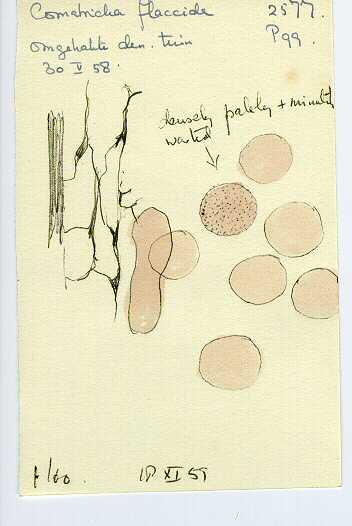 Comatricha flaccida 2577.
omgehakte den. tuin P99.
30 V 58.
densely patchy + minutely
warted
1/60. 18 XI 59